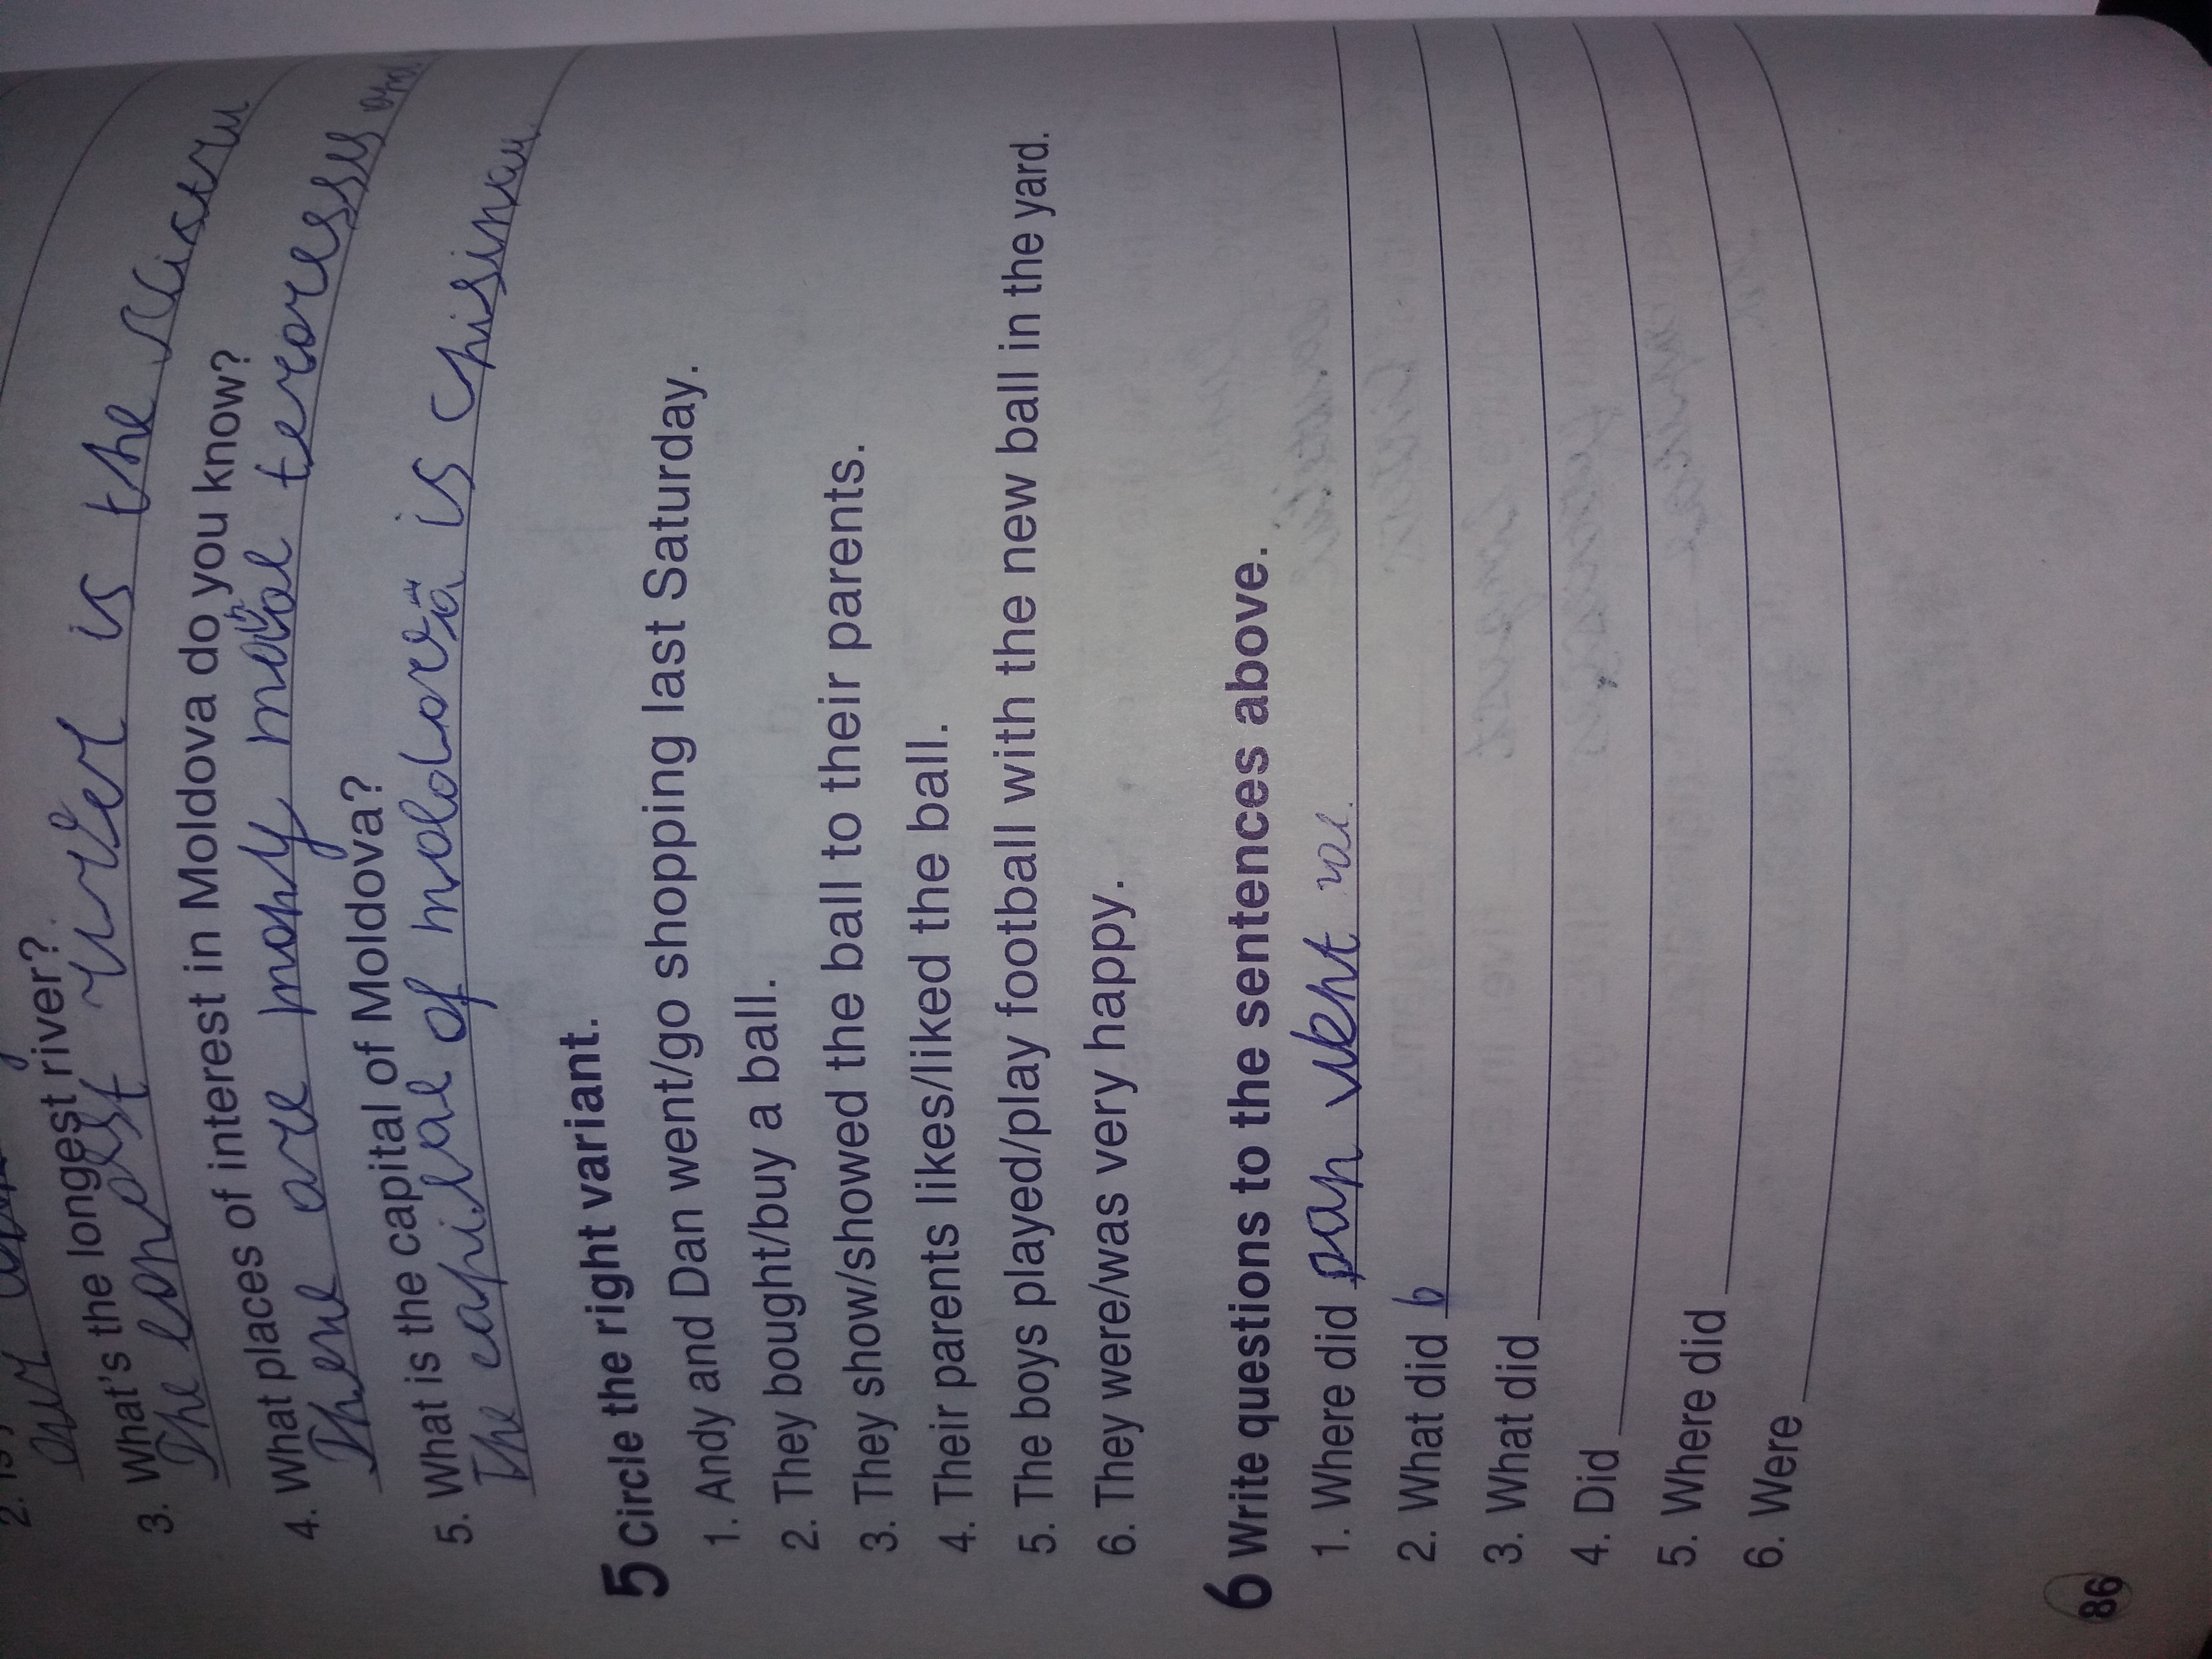 our
3. What's the longest river?
The longest river is the Nistru
4. What places of interest in Moldova do you know?
There are many
5. What is the capital of Moldova?
The capital of moldova is Chisinau
5 Circle the right variant.
1. Andy and Dan went/go shopping last Saturday.
2. They bought/buy a ball.
3. They show/showed the ball to their parents.
4. Their parents likes/liked the ball.
5. The boys played/play football with the new ball in the yard.
6. They were/was very happy.
6 Write questions to the sentences above.
1. Where did Dan went
2. What did b
3. What did
4. Did
5. Where did
6. Were
86